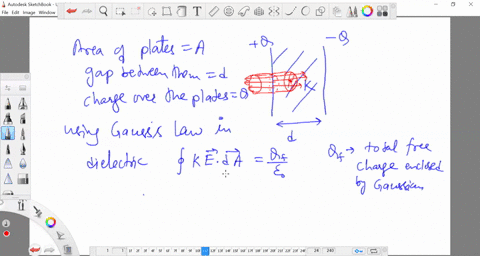 Autodesk SketchBook
Area of plates = A
gap between them = d
charge over the plates = Q
+Q
-Q
K
d
using Gauss's Law in
dielectric ∮ K E⃗·dA⃗ = Qf/ε₀
Qf → total free
charge enclosed
by Gaussian